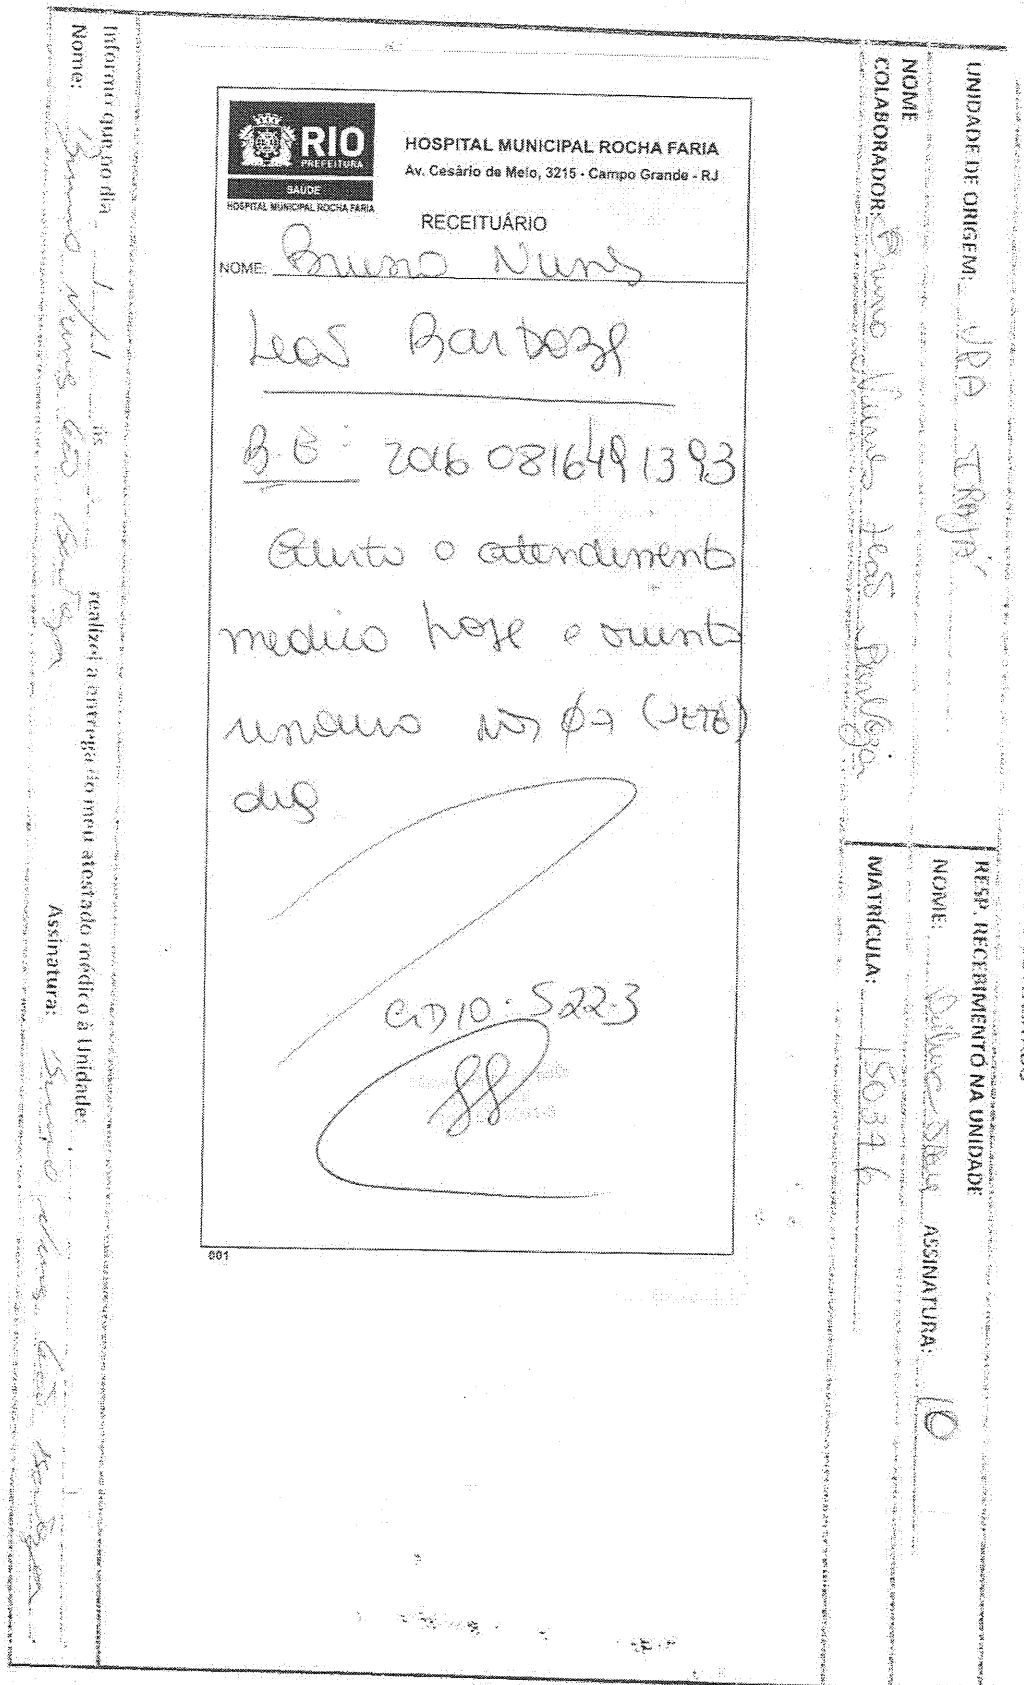 RIO
PREFEITURA
SAÚDE
HOSPITAL MUNICIPAL ROCHA FARIA
HOSPITAL MUNICIPAL ROCHA FARIA
Av. Cesário de Melo, 3215 - Campo Grande - RJ
RECEITUÁRIO
NOME: Bruno Nunes
Leão Barboza
B.E: 2016 081649 1393
atendimento
medico hoje e oriento
07 (SETE)
dias
CID 10: S22.3
001
UNIDADE DE ORIGEM: UPA IRAJÁ
NOME
COLABORADOR: Bruno Nunes Leão Barboza
RESP. RECEBIMENTO NA UNIDADE
NOME: ASSINATURA:
MATRÍCULA: 150376
Informo que no dia / / às realizei a entrega do meu atestado médico à Unidade:
Nome: Bruno Nunes Leão Barboza Assinatura: Bruno Nunes Leão Barboza